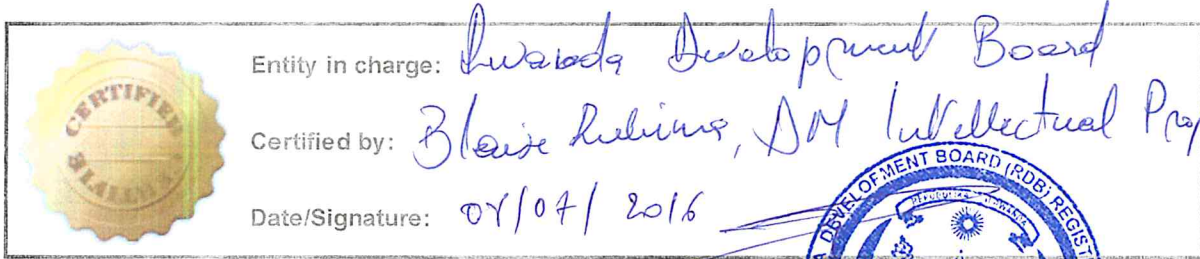 Entity in charge: Rwanda Development Board
Certified by: Blaise Ruhima, DM Intellectual Prop
Date/Signature: 07/2016
CERTIFIED
DEVELOPMENT BOARD (RDB) REGIST